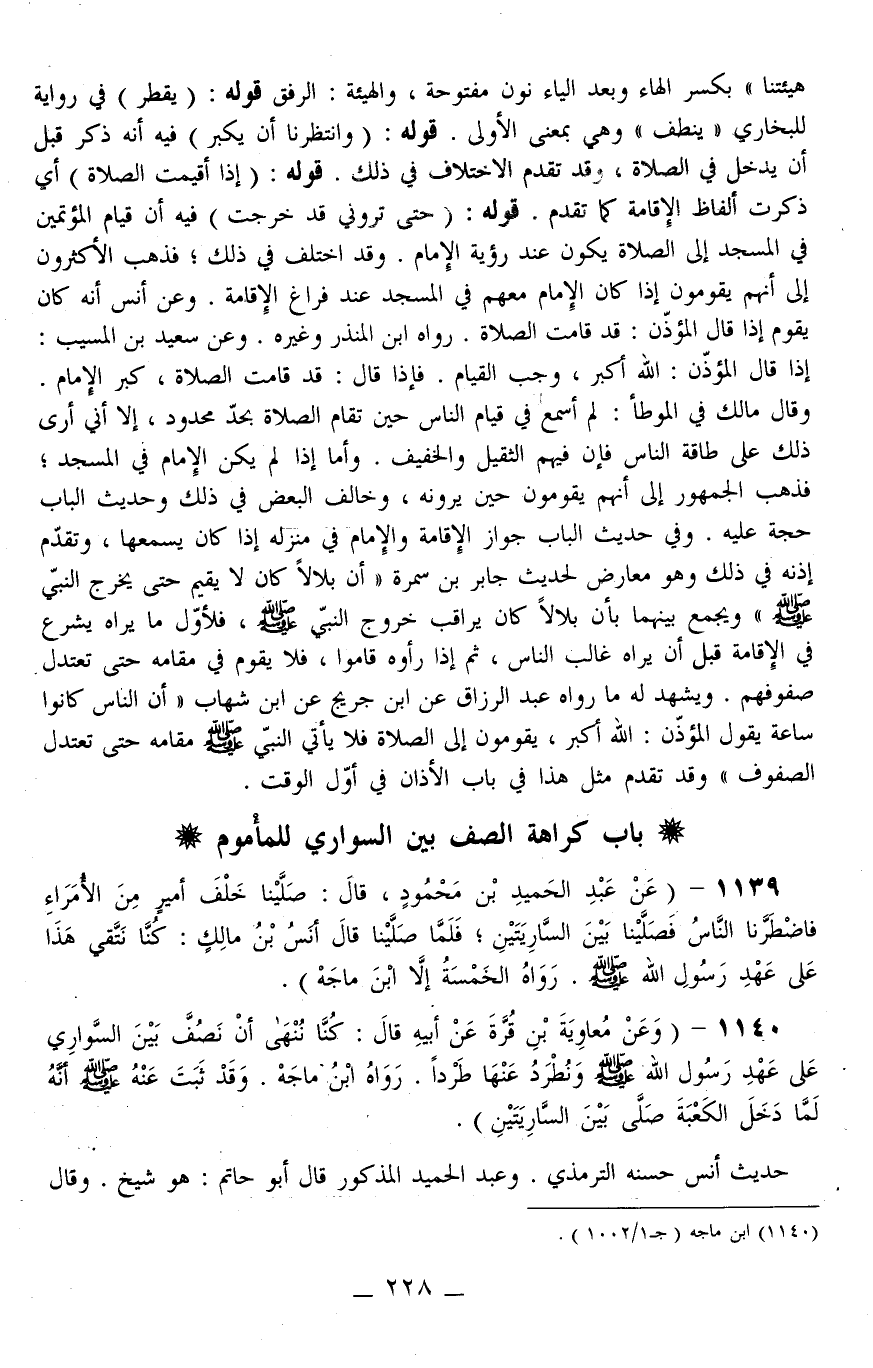 هيئتنا » بكسر الهاء وبعد الياء نون مفتوحة ، والهيئة : الرفق قوله : ( يقطر ) في رواية
للبخاري « ينطف » وهي بمعنى الأولى . قوله : ( وانتظرنا أن يكبر ) فيه أنه ذكر قبل
أن يدخل في الصلاة ، وقد تقدم الاختلاف في ذلك . قوله : ( إذا أقيمت الصلاة ) أي
ذكرت ألفاظ الإقامة كما تقدم . قوله : ( حتى تروني قد خرجت ) فيه أن قيام المؤتمين
في المسجد إلى الصلاة يكون عند رؤية الإمام . وقد اختلف في ذلك ؛ فذهب الأكثرون
إلى أنهم يقومون إذا كان الإمام معهم في المسجد عند فراغ الإقامة . وعن أنس أنه كان
يقوم إذا قال المؤذّن : قد قامت الصلاة . رواه ابن المنذر وغيره . وعن سعيد بن المسيب :
إذا قال المؤذّن : الله أكبر ، وجب القيام . فإذا قال : قد قامت الصلاة ، كبر الإمام .
وقال مالك في الموطأ : لم أسمع في قيام الناس حين تقام الصلاة بحدّ محدود ، إلا أني أرى
ذلك على طاقة الناس فإن فيهم الثقيل والخفيف . وأما إذا لم يكن الإمام في المسجد ؛
فذهب الجمهور إلى أنهم يقومون حين يرونه ، وخالف البعض في ذلك وحديث الباب
حجة عليه . وفي حديث الباب جواز الإقامة والإمام في منزله إذا كان يسمعها ، وتقدّم
إذنه في ذلك وهو معارض لحديث جابر بن سمرة « أن بلالاً كان لا يقيم حتى يخرج النبيّ
ﷺ » ويجمع بينهما بأن بلالاً كان يراقب خروج النبيّ ﷺ ، فلأوّل ما يراه يشرع
في الإقامة قبل أن يراه غالب الناس ، ثم إذا رأوه قاموا ، فلا يقوم في مقامه حتى تعتدل
صفوفهم . ويشهد له ما رواه عبد الرزاق عن ابن جريج عن ابن شهاب « أن الناس كانوا
ساعة يقول المؤذّن : الله أكبر ، يقومون إلى الصلاة فلا يأتي النبيّ ﷺ مقامه حتى تعتدل
الصفوف » وقد تقدم مثل هذا في باب الأذان في أوّل الوقت .
باب كراهة الصف بين السواري للمأموم
١١٣٩ - ( عَنْ عَبْدِ الحَميدِ بْنِ مَحْمُودٍ ، قالَ : صَلَّيْنا خَلْفَ أميرٍ مِنَ الأُمَرَاءِ
فاضْطَرَّنا النَّاسُ فَصَلَّيْنا بَيْنَ السَّارِيَتَيْنِ ؛ فَلَمَّا صَلَّيْنا قالَ أنَسُ بْنُ مالِكٍ : كُنَّا نَتَّقي هَذَا
عَلى عَهْدِ رَسُولِ الله ﷺ . رَوَاهُ الخَمْسَةُ إلَّا ابْنَ ماجَهْ ) .
١١٤٠ - ( وَعَنْ مُعاوِيَةَ بْنِ قُرَّةَ عَنْ أبيهِ قالَ : كُنَّا نُنْهَىٰ أنْ نَصُفَّ بَيْنَ السَّوارِي
عَلى عَهْدِ رَسُول الله ﷺ وَنُطْرَدُ عَنْهَا طَرْداً . رَوَاهُ ابْنُ ماجَهْ . وَقَدْ ثَبَتَ عَنْهُ ﷺ أنَّهُ
لَمَّا دَخَلَ الكَعْبَةَ صَلَّى بَيْنَ السَّارِيَتَيْنِ ) .
حديث أنس حسنه الترمذي . وعبد الحميد المذكور قال أبو حاتم : هو شيخ . وقال
(١١٤٠) ابن ماجه ( جـ١/١٠٠٢ ) .
_ ٢٢٨ _